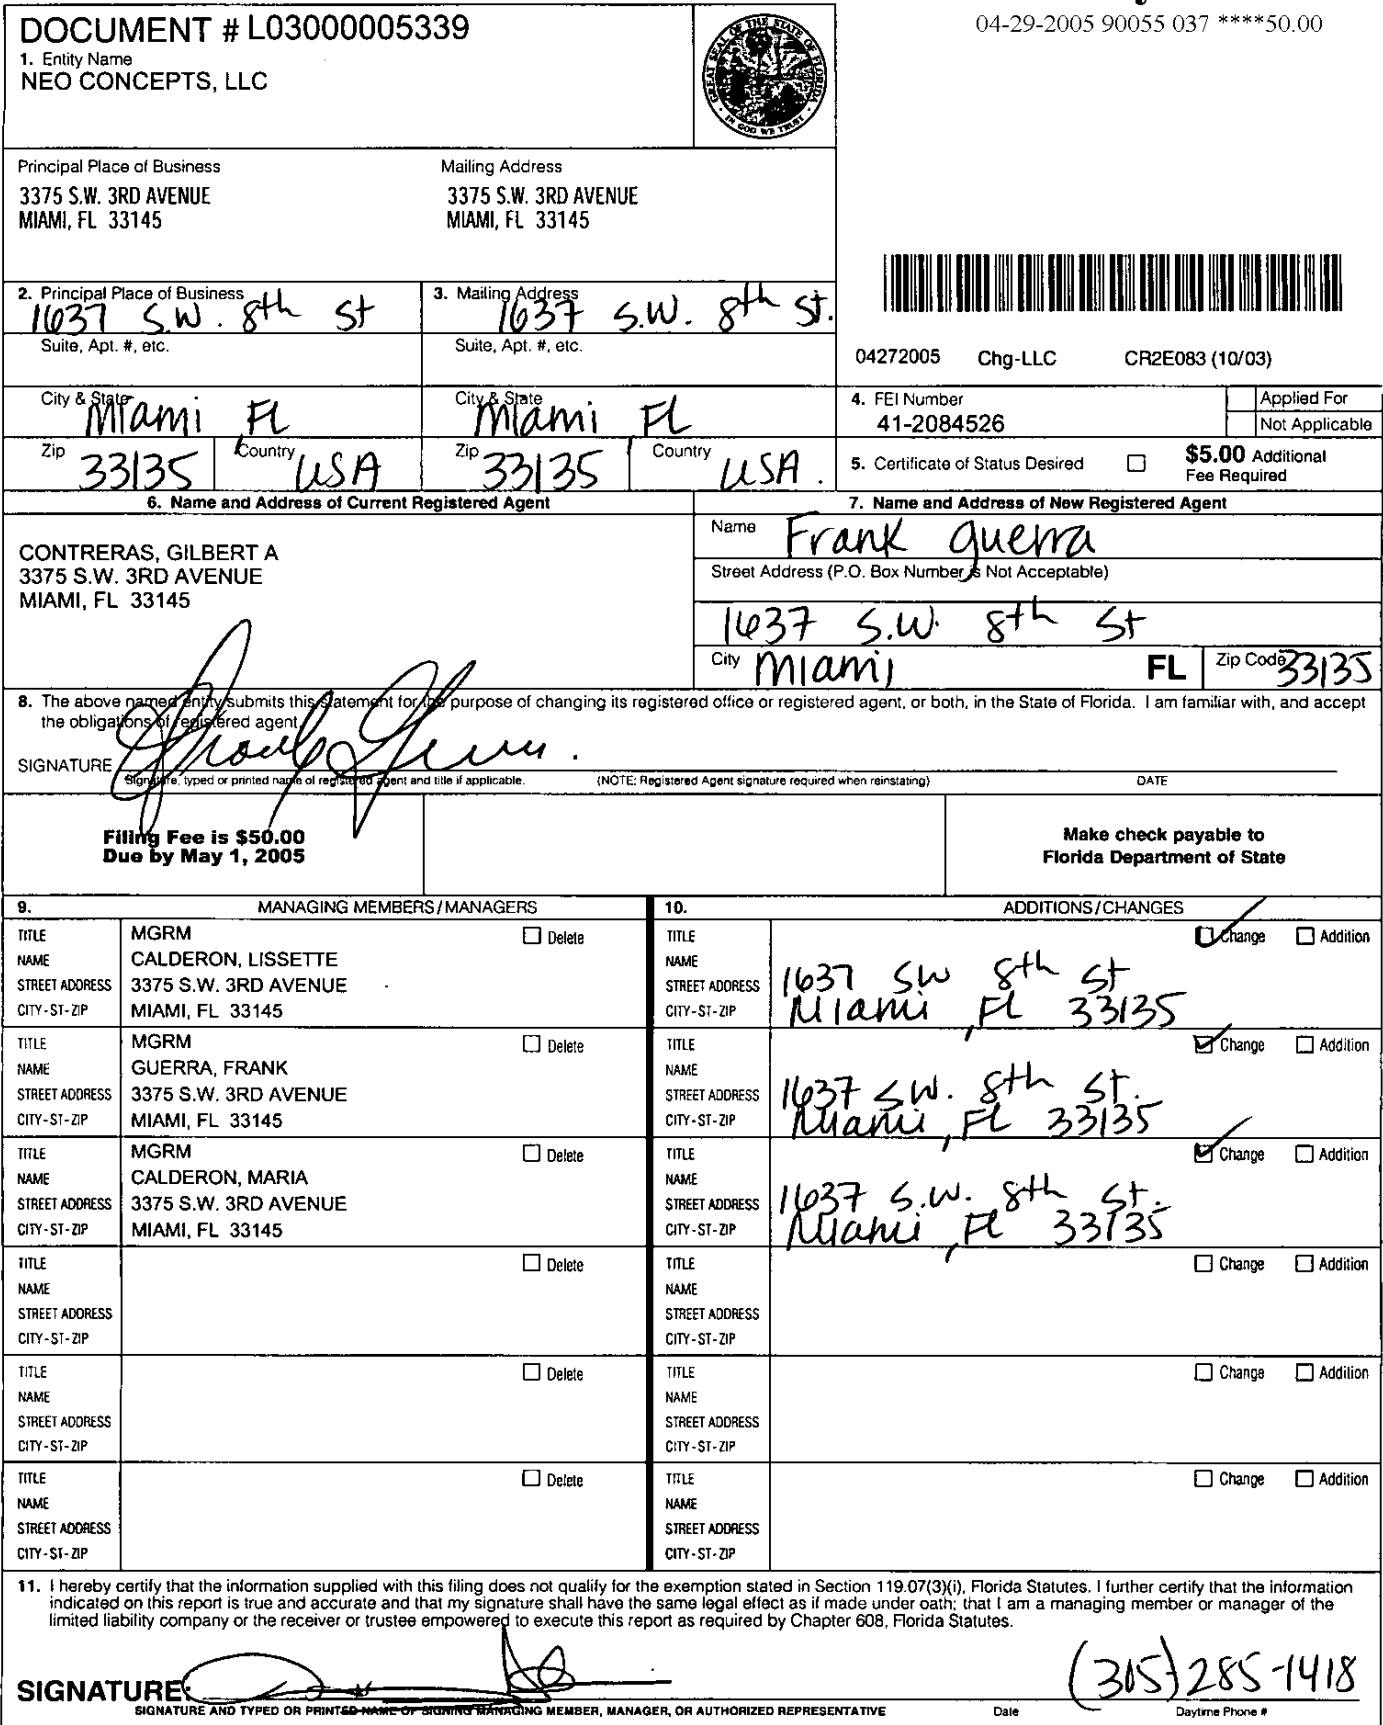 04-29-2005 90055 037 ****50.00
DOCUMENT # L03000005339
1. Entity Name
NEO CONCEPTS, LLC
GREAT SEAL OF THE STATE OF FLORIDA
IN GOD WE TRUST
Principal Place of Business
3375 S.W. 3RD AVENUE
MIAMI, FL 33145
Mailing Address
3375 S.W. 3RD AVENUE
MIAMI, FL 33145
2. Principal Place of Business
1637 S.W. 8th St
Suite, Apt. #, etc.
City & State
Miami FL
Zip
33135
Country
USA
3. Mailing Address
1637 S.W. 8th St.
Suite, Apt. #, etc.
City & State
Miami FL
Zip
33135
Country
USA.
04272005 Chg-LLC CR2E083 (10/03)
4. FEI Number
41-2084526
Applied For
Not Applicable
5. Certificate of Status Desired
$5.00 Additional
Fee Required
6. Name and Address of Current Registered Agent
CONTRERAS, GILBERT A
3375 S.W. 3RD AVENUE
MIAMI, FL 33145
7. Name and Address of New Registered Agent
Name Frank Guerra
Street Address (P.O. Box Number is Not Acceptable)
1637 S.W. 8th St
City Miami FL Zip Code 33135
8. The above named entity submits this statement for the purpose of changing its registered office or registered agent, or both, in the State of Florida. I am familiar with, and accept
the obligations of registered agent.
SIGNATURE
Signature, typed or printed name of registered agent and title if applicable. (NOTE: Registered Agent signature required when reinstating) DATE
Filing Fee is $50.00
Due by May 1, 2005
Make check payable to
Florida Department of State
9. MANAGING MEMBERS/MANAGERS
TITLE MGRM Delete
NAME CALDERON, LISSETTE
STREET ADDRESS 3375 S.W. 3RD AVENUE
CITY-ST-ZIP MIAMI, FL 33145
TITLE MGRM Delete
NAME GUERRA, FRANK
STREET ADDRESS 3375 S.W. 3RD AVENUE
CITY-ST-ZIP MIAMI, FL 33145
TITLE MGRM Delete
NAME CALDERON, MARIA
STREET ADDRESS 3375 S.W. 3RD AVENUE
CITY-ST-ZIP MIAMI, FL 33145
TITLE Delete
NAME
STREET ADDRESS
CITY-ST-ZIP
TITLE Delete
NAME
STREET ADDRESS
CITY-ST-ZIP
TITLE Delete
NAME
STREET ADDRESS
CITY-ST-ZIP
10. ADDITIONS/CHANGES
TITLE Change Addition
NAME
STREET ADDRESS 1637 SW 8th St
CITY-ST-ZIP Miami, FL 33135
TITLE Change Addition
NAME
STREET ADDRESS 1637 S.W. 8th St.
CITY-ST-ZIP Miami, FL 33135
TITLE Change Addition
NAME
STREET ADDRESS 1637 S.W. 8th St.
CITY-ST-ZIP Miami, FL 33135
TITLE Change Addition
NAME
STREET ADDRESS
CITY-ST-ZIP
TITLE Change Addition
NAME
STREET ADDRESS
CITY-ST-ZIP
TITLE Change Addition
NAME
STREET ADDRESS
CITY-ST-ZIP
11. I hereby certify that the information supplied with this filing does not qualify for the exemption stated in Section 119.07(3)(i), Florida Statutes. I further certify that the information
indicated on this report is true and accurate and that my signature shall have the same legal effect as if made under oath; that I am a managing member or manager of the
limited liability company or the receiver or trustee empowered to execute this report as required by Chapter 608, Florida Statutes.
SIGNATURE: (305) 285-1418
SIGNATURE AND TYPED OR PRINTED NAME OF SIGNING MANAGING MEMBER, MANAGER, OR AUTHORIZED REPRESENTATIVE Date Daytime Phone #